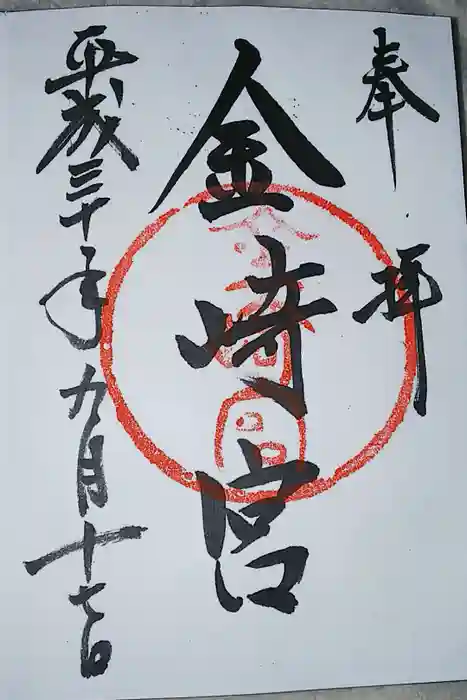 奉拝
金崎宮
平成三十年九月十七日
金崎宮